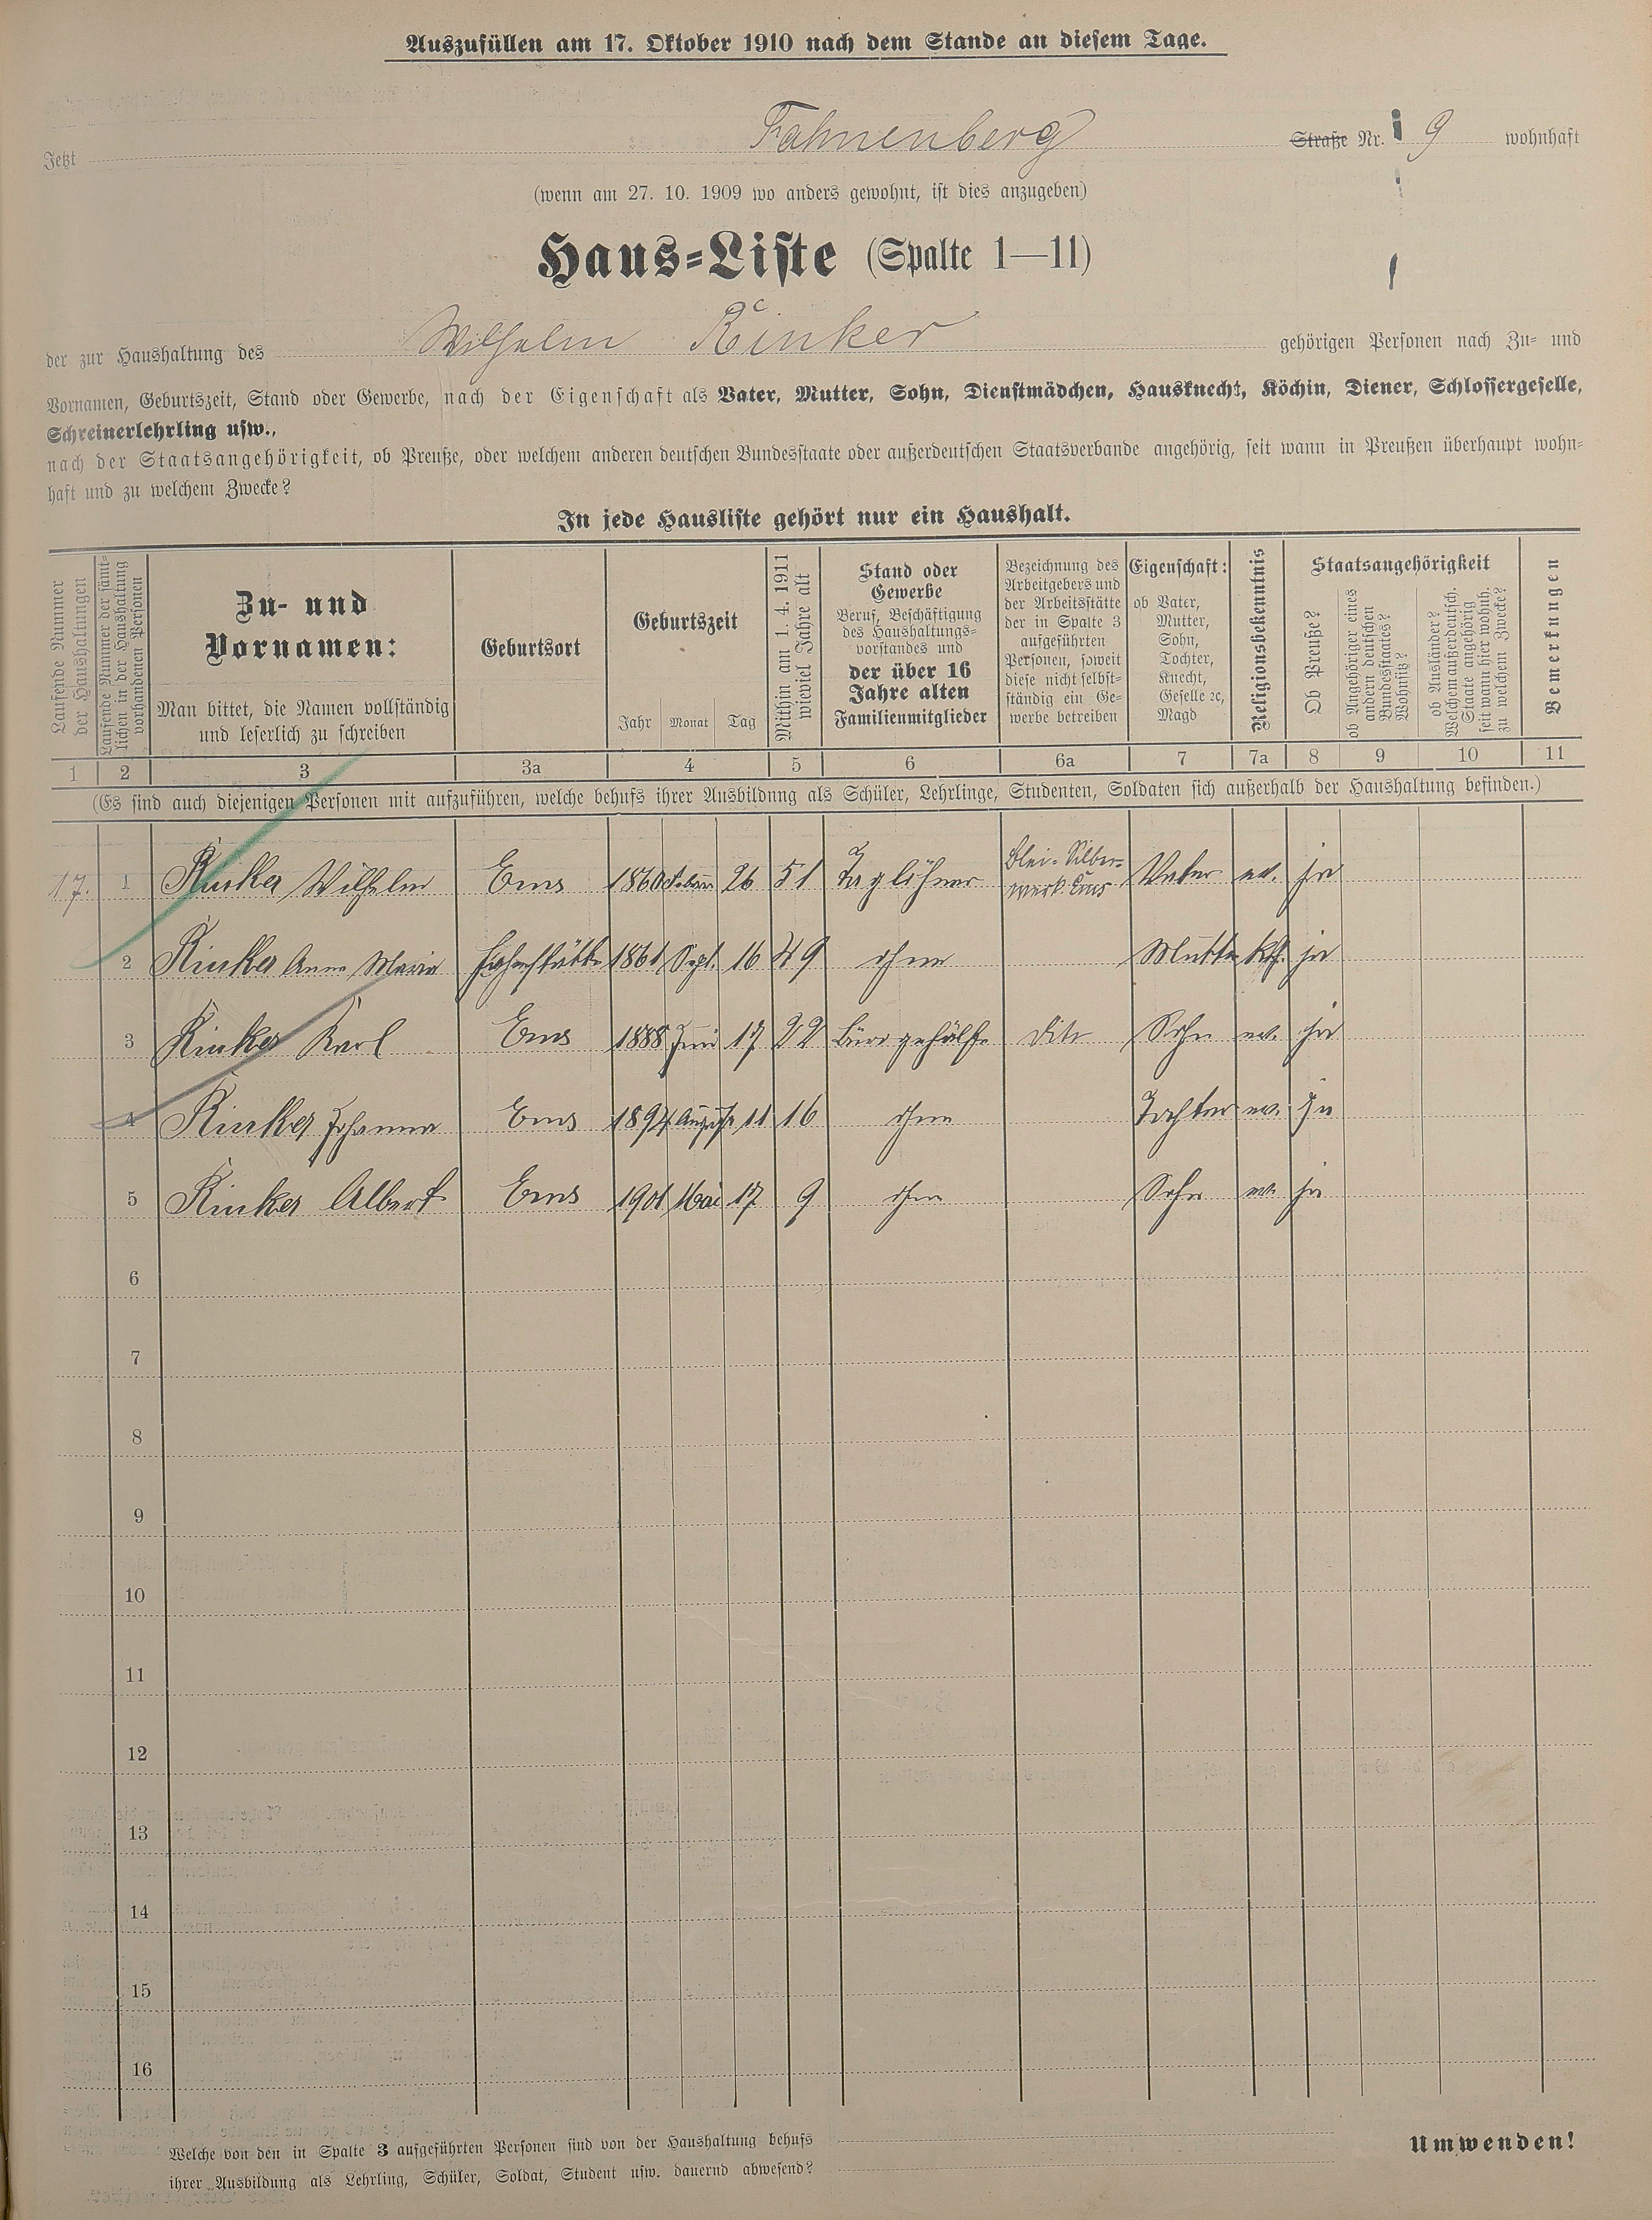 Auszufüllen am 17. Oktober 1910 nach dem Stande an diesem Tage.
Jetzt Fahnenberg Straße Nr. 9 wohnhaft
(wenn am 27. 10. 1909 wo anders gewohnt, ist dies anzugeben)
Haus-Liste (Spalte 1—11)
der zur Haushaltung des Wilhelm Rinker gehörigen Personen nach Zu- und
Vornamen, Geburtszeit, Stand oder Gewerbe, nach der Eigenschaft als Vater, Mutter, Sohn, Dienstmädchen, Hausknecht, Köchin, Diener, Schlossergeselle,
Schreinerlehrling usw.,
nach der Staatsangehörigkeit, ob Preuße, oder welchem anderen deutschen Bundesstaate oder außerdeutschen Staatsverbande angehörig, seit wann in Preußen überhaupt wohn-
haft und zu welchem Zwecke?
In jede Hausliste gehört nur ein Haushalt.
Laufende Nummer
der Haushaltungen
Laufende Nummer der sämt-
lichen in der Haushaltung
vorhandenen Personen
Zu- und
Vornamen:
Man bittet, die Namen vollständig
und leserlich zu schreiben
Geburtsort
Geburtszeit
Jahr Monat Tag
Mithin am 1. 4. 1911
wieviel Jahre alt
Stand oder
Gewerbe
Beruf, Beschäftigung
des Haushaltungs-
vorstandes und
der über 16
Jahre alten
Familienmitglieder
Bezeichnung des
Arbeitgebers und
der Arbeitsstätte
der in Spalte 3
aufgeführten
Personen, soweit
diese nicht selbst-
ständig ein Ge-
werbe betreiben
Eigenschaft:
ob Vater,
Mutter,
Sohn,
Tochter,
Knecht,
Geselle ꝛc,
Magd
Religionsbekenntnis
Staatsangehörigkeit
Ob Preuße?
ob Angehöriger eines
andern deutschen
Bundesstaates?
Wohnsitz?
ob Ausländer?
Welchem außerdeutsch.
Staate angehörig
seit wann hier wohnh.
zu welchem Zwecke?
Bemerkungen
1 2 3 3a 4 5 6 6a 7 7a 8 9 10 11
(Es sind auch diejenigen Personen mit aufzuführen, welche behufs ihrer Ausbildung als Schüler, Lehrlinge, Studenten, Soldaten sich außerhalb der Haushaltung befinden.)
17. 1 Rinker Wilhelm Ems 1860 October 26 51 Taglöhner Blei- Silber-
werk Ems Vater ev. ja
2 Rinker Anna Maria 1861 Sept. 16 49 ohne Mutter kth. ja
3 Rinker Karl Ems 1888 Juni 17 22 Bürogehülfe dito Sohn ev. ja
4 Rinker Johanna Ems 1894 August 11 16 ohne Tochter ev. ja
5 Rinker Albert Ems 1901 Mai 17 9 ohne Sohn ev. ja
6
7
8
9
10
11
12
13
14
15
16
Welche von den in Spalte 3 aufgeführten Personen sind von der Haushaltung behufs
ihrer Ausbildung als Lehrling, Schüler, Soldat, Student usw. dauernd abwesend?
Umwenden!